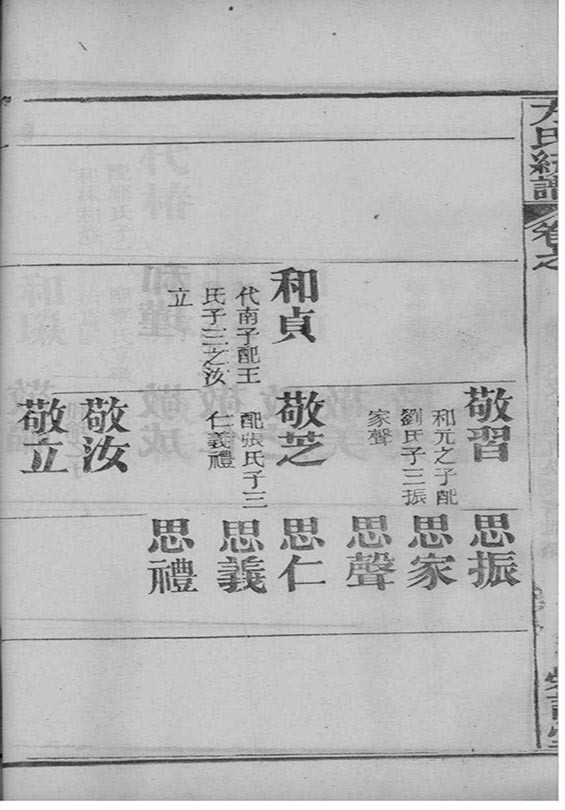 方氏統譜
卷之
和貞
代南子配王
氏子三之汝
立
敬習
和元之子配
劉氏子三振
家聲
敬芝
配張氏子三
仁義禮
敬汝
敬立
思振
思家
思聲
思仁
思義
思禮